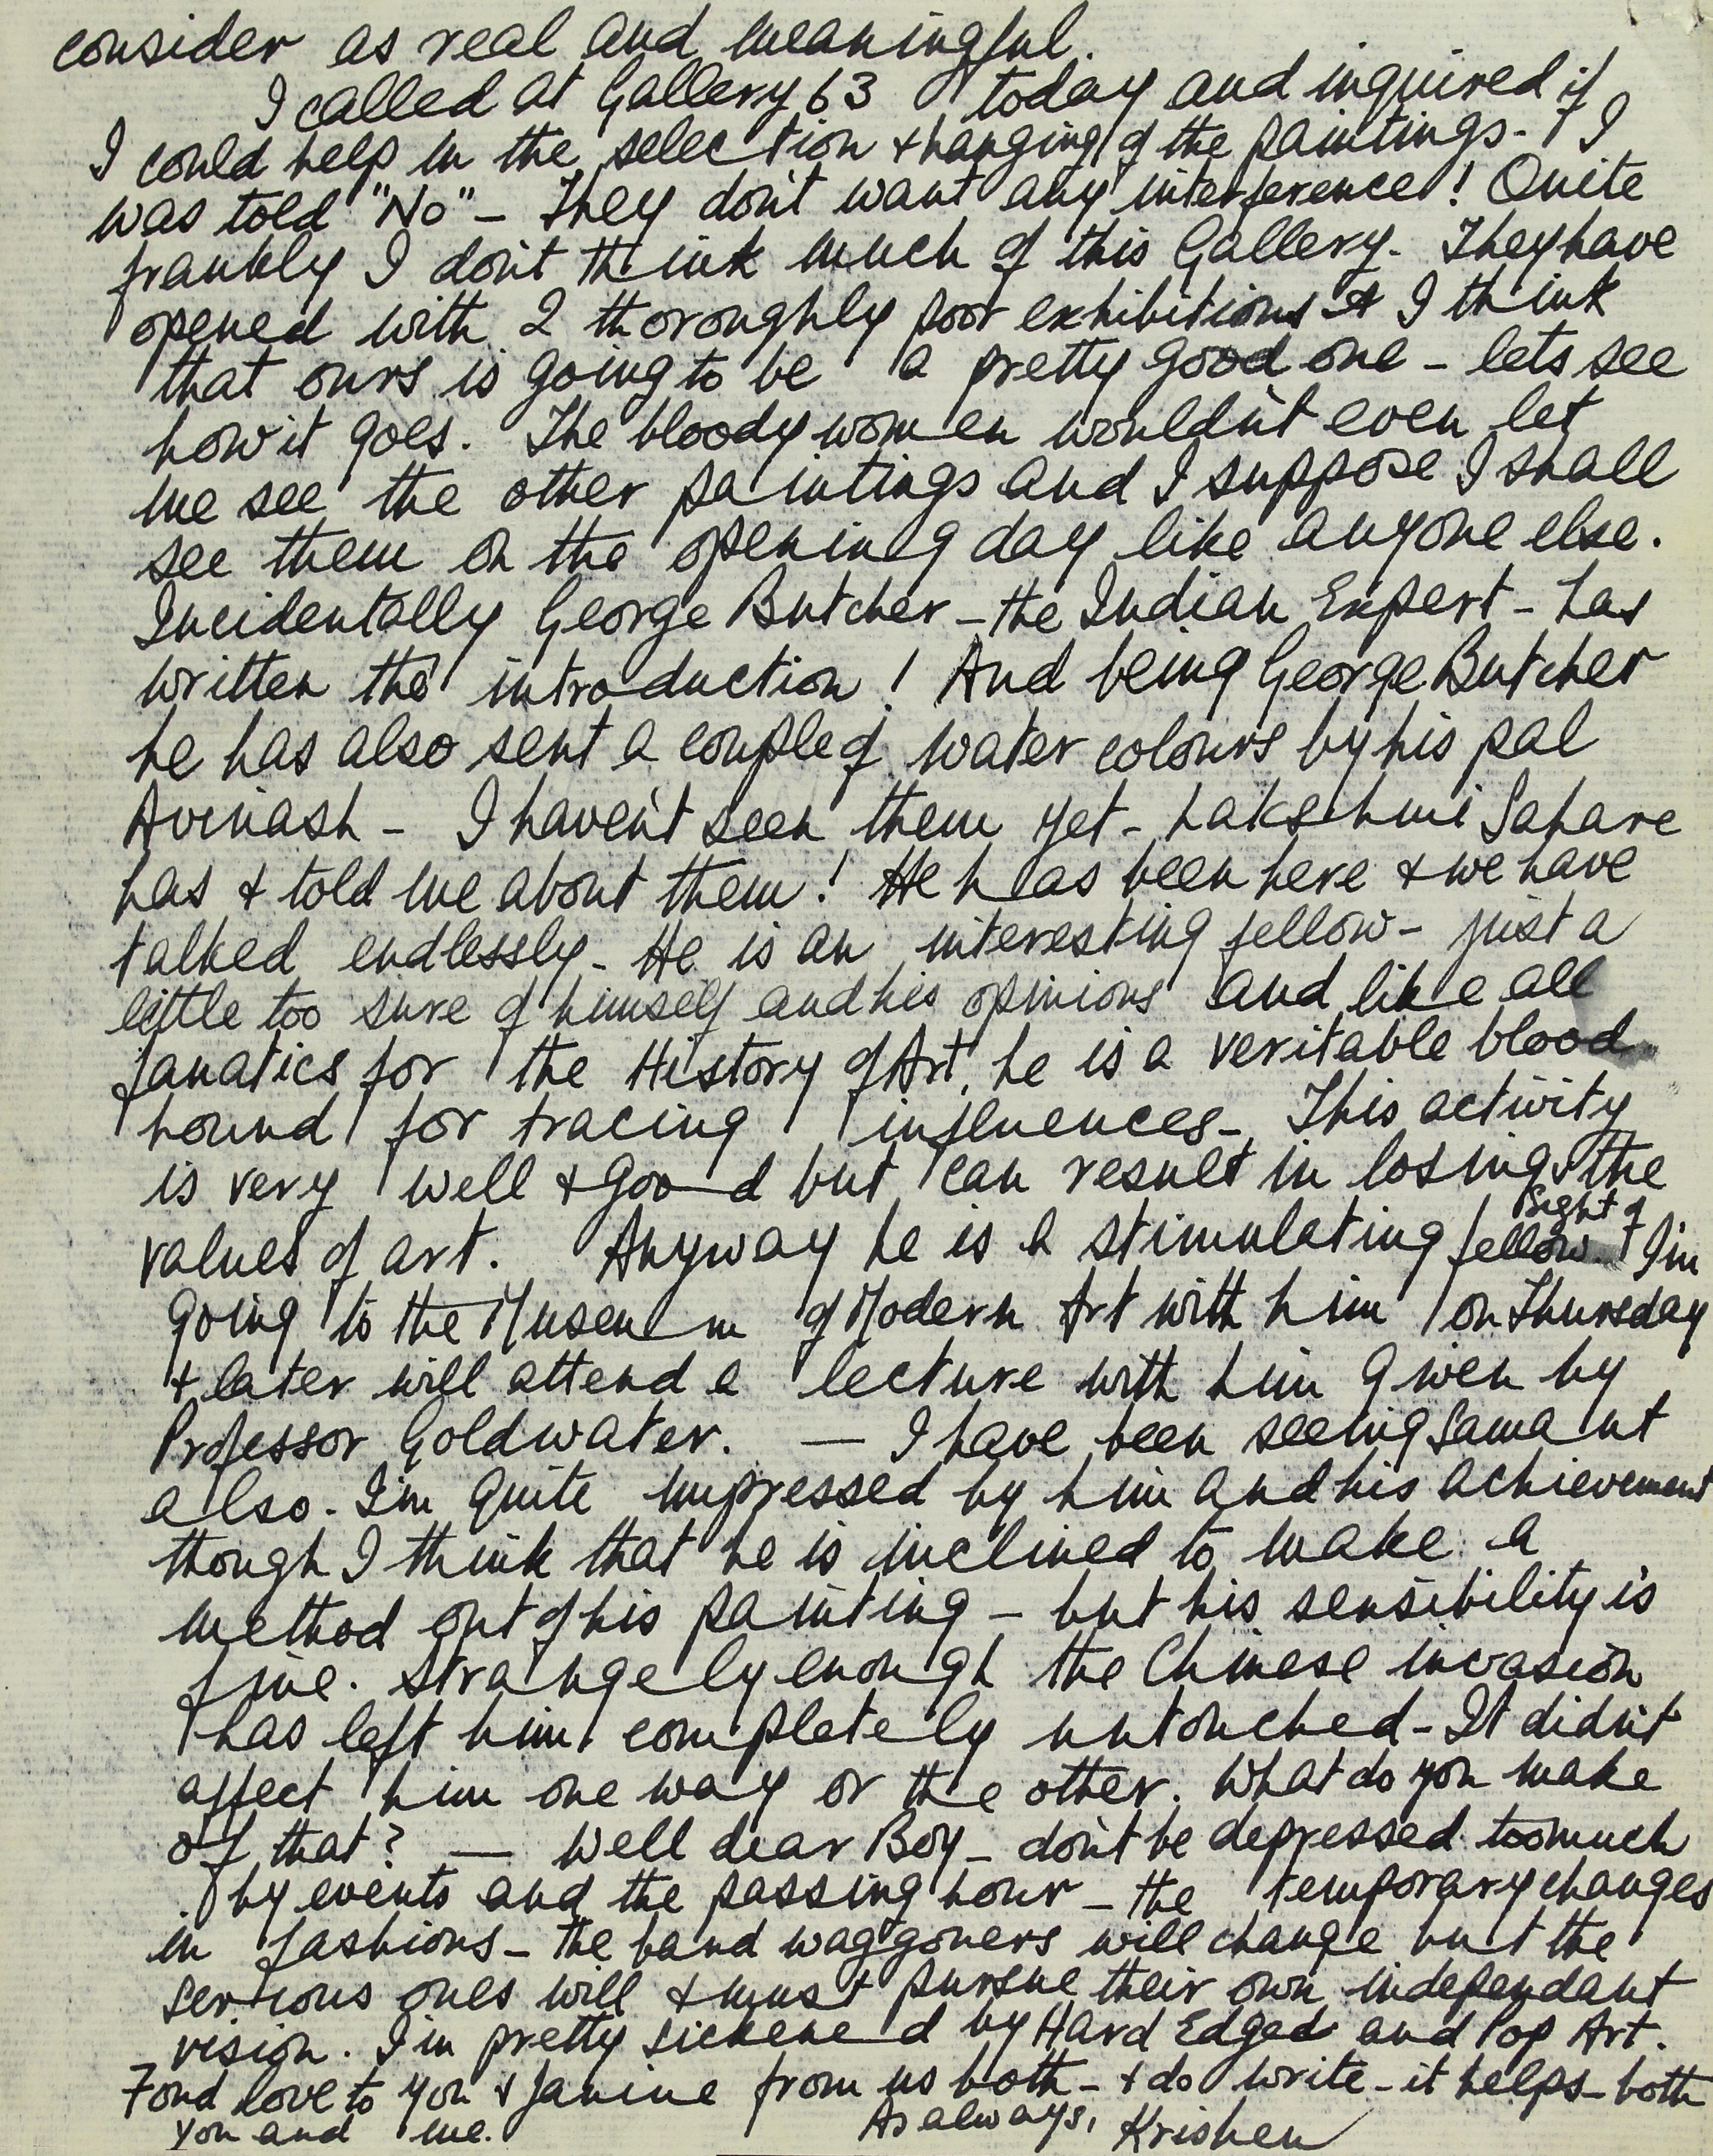 consider as real and meaningful.
I called at Gallery 63 today and inquired if
I could help in the selection & hanging of the paintings - I
was told "No" - They don't want any interference! Quite
frankly I don't think much of this Gallery. They have
opened with 2 thoroughly poor exhibitions & I think
that ours is going to be a pretty good one - lets see
how it goes. The bloody women wouldn't even let
me see the other paintings and I suppose I shall
see them on the opening day like anyone else.
Incidentally George Butcher - the Indian Expert - has
written the introduction! And being George Butcher
he has also sent a couple of water colours by his pal
Avinash - I haven't seen them yet - Lakshmi Sahare
has & told me about them! He has been here & we have
talked endlessly - He is an interesting fellow - just a
little too sure of himself and his opinions and like all
fanatics for the History of Art, he is a veritable blood
hound for tracing influences - This activity
is very well & good but can result in losing the
sight of
values of art. Anyway he is a stimulating fellow. I'm
going to the Museum of Modern Art with him on Thursday
& later will attend a lecture with him given by
Professor Goldwater. — I have been seeing Samant
also. I'm quite impressed by him and his achievement
though I think that he is inclined to make a
method out of his painting - but his sensibility is
fine. Strangely enough the Chinese invasion
has left him completely untouched - It didn't
affect him one way or the other. What do you make
of that? — Well dear Boy - don't be depressed too much
by events and the passing hour - the temporary changes
in fashions - the band waggoners will change but the
serious ones will & must pursue their own independant
vision. I'm pretty sickened by Hard Edged and Pop Art.
Fond love to you & Janine from us both - & do write - it helps - both
you and me. As always, Krishen